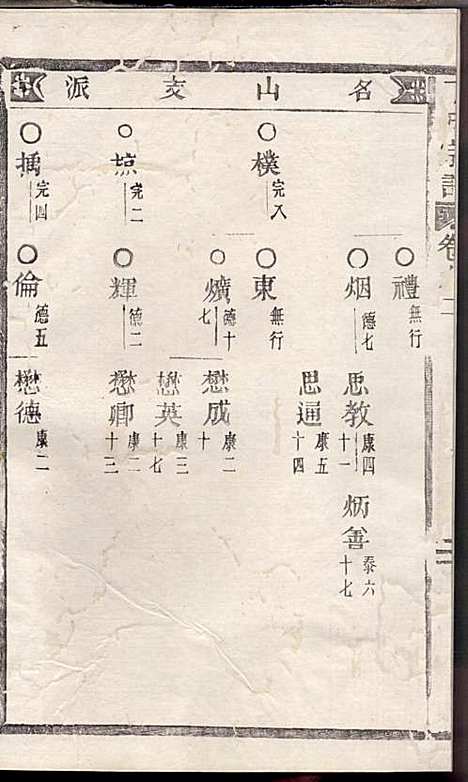 名山支派
禮 無行
烟 德七
思教 康四十一
炳善 泰六十七
思通 康五十四
樸 完八
東 無行
爌 德十七
懋成 康二十
懋英 康三十七
輝 德二
懋卿 康二十三
完二
完四
倫 德五
懋德 康二